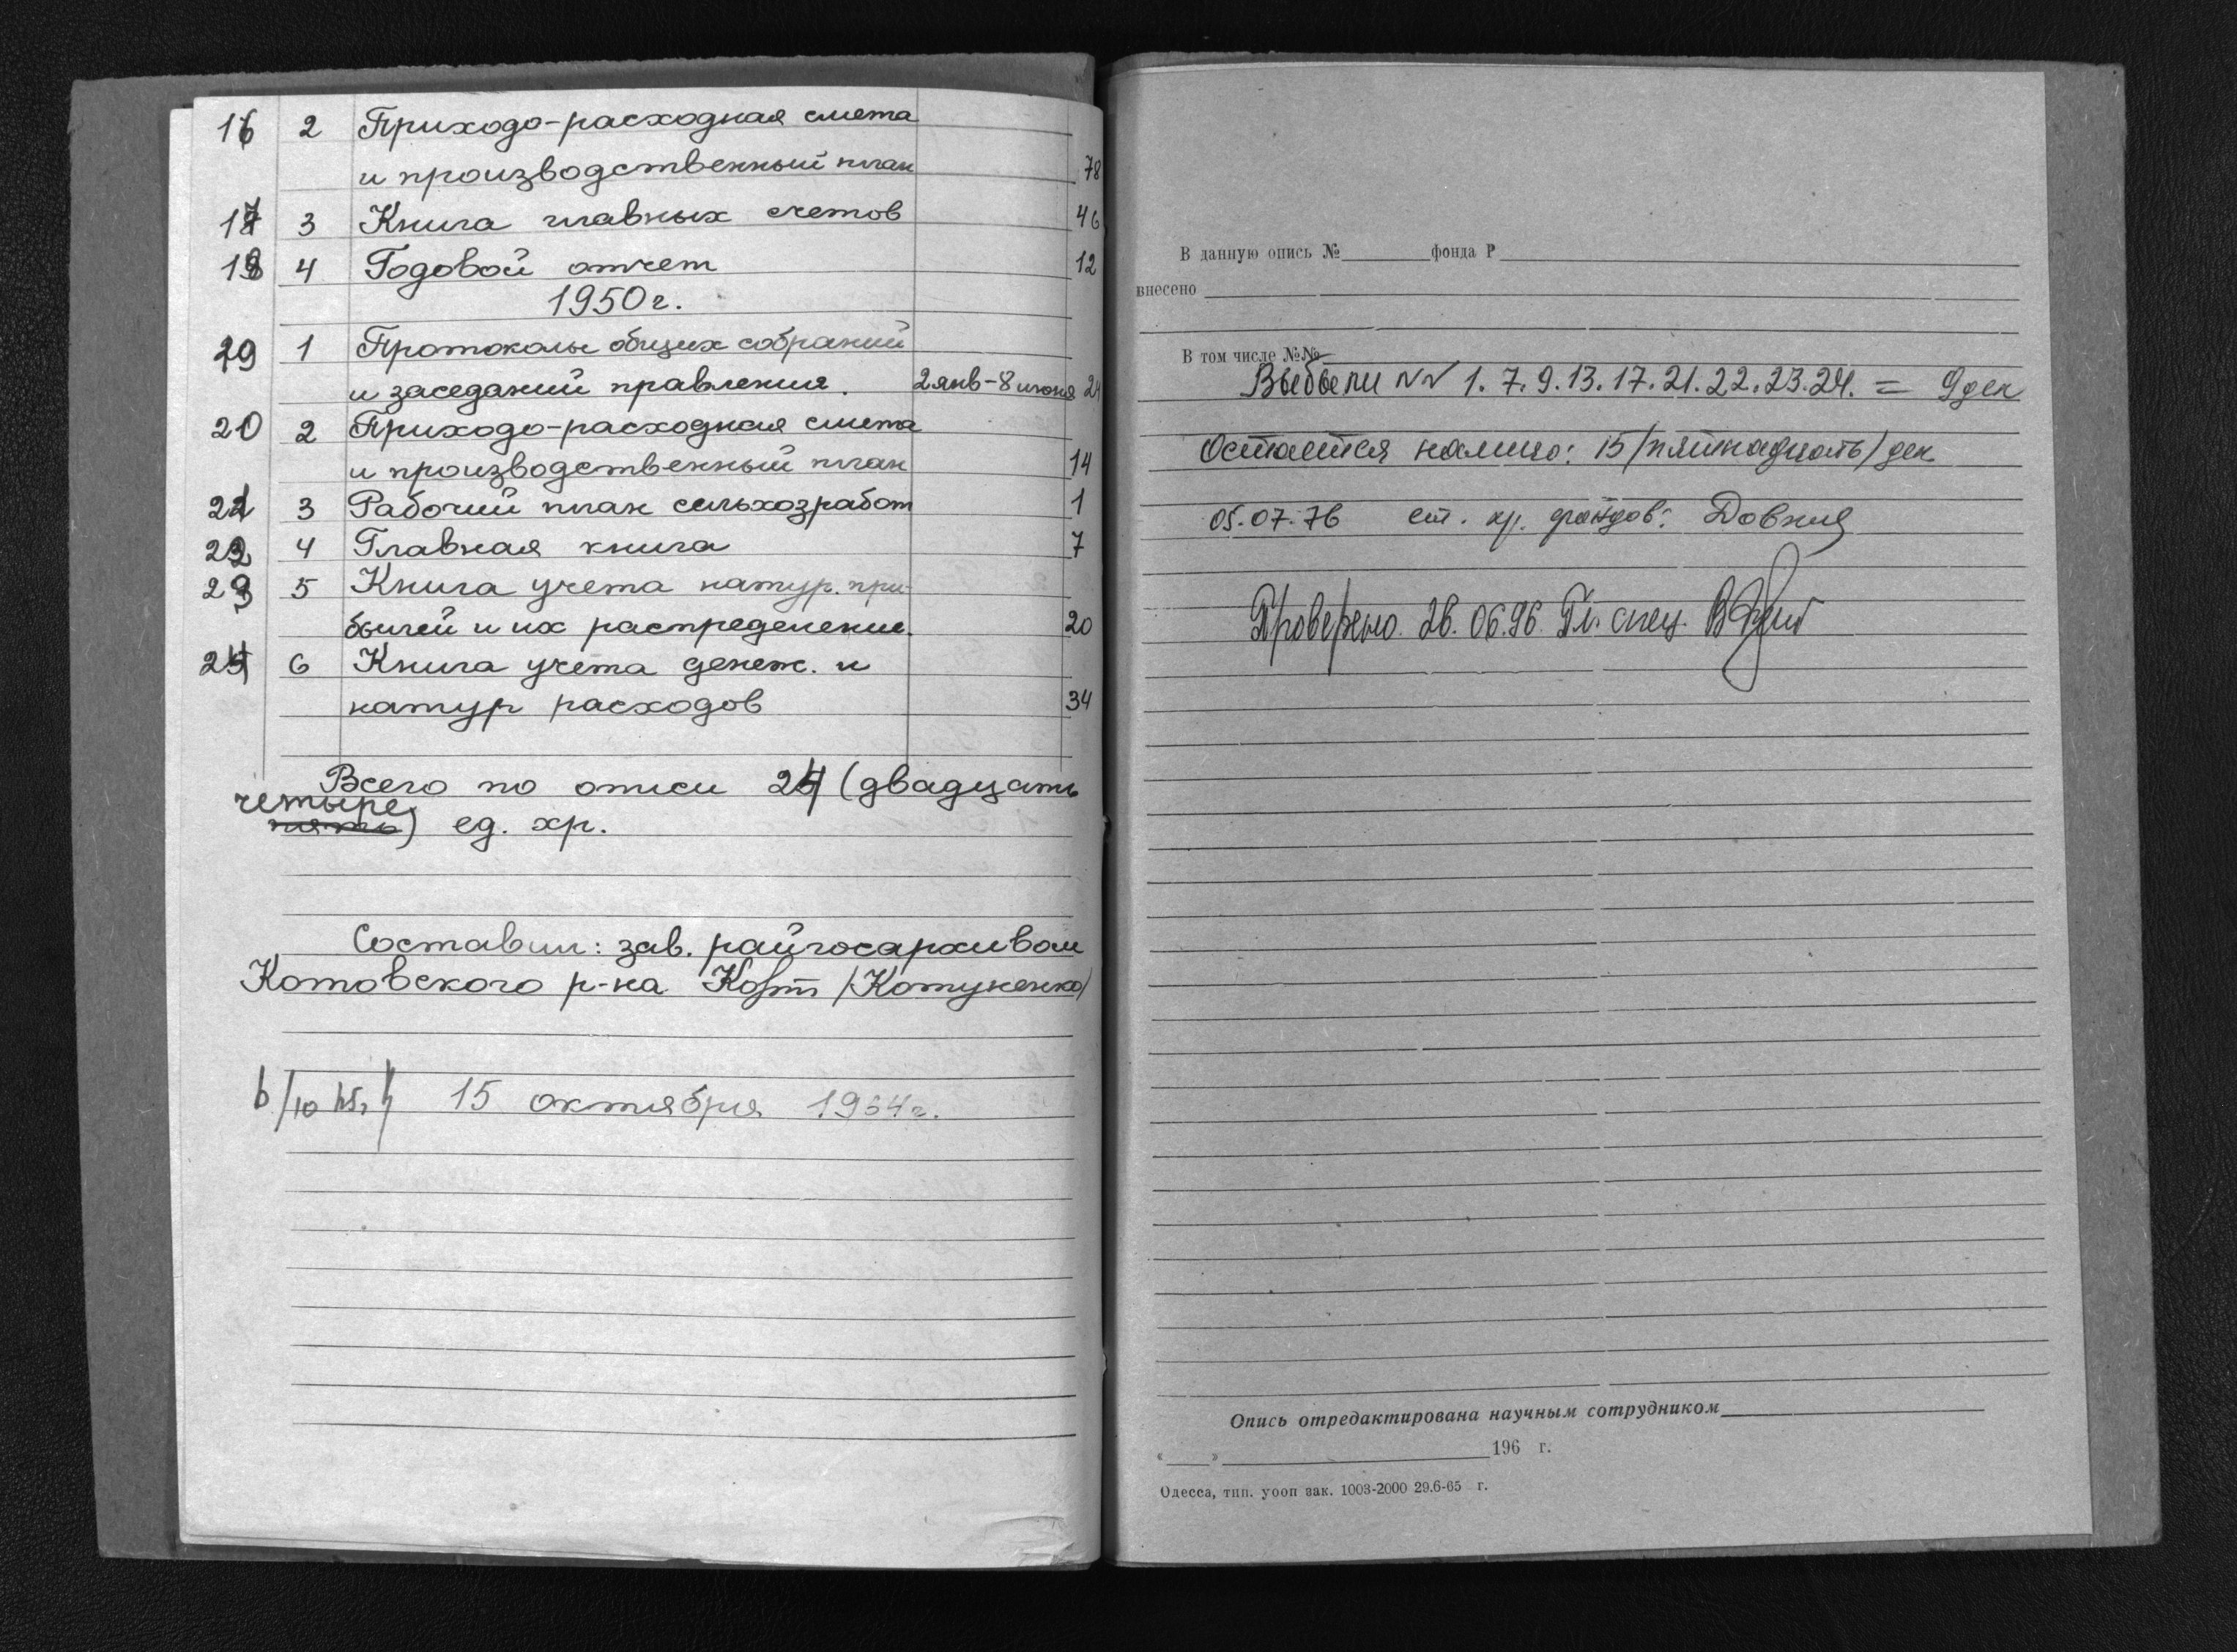 16 2 Приходо-расходная смета
и производственный план 78
17 3 Книга главных счетов 46
18 4 Годовой отчет 12
1950 г.
19 1 Протоколы общих собраний
и заседаний правления. 2 янв-8 июня 24
20 2 Приходо-расходная смета
и производственный план 14
21 3 Рабочий план сельхозработ 1
22 4 Главная книга 7
23 5 Книга учета натур. при-
былей и их распределение. 20
24 6 Книга учета денеж. и
натур расходов 34
Всего по описи 24 (двадцать
четыре
пять) ед. хр.
Составил: зав. райгосархивом
Котовского р-на /Котуненко/
15 октября 1964 г.
В данную опись № фонда Р
внесено
В том числе №№
Выбыли NN 1. 7. 9. 13. 17. 21. 22. 23. 24. = 9 дел
Остается налицо: 15 /пятнадцать/ дел
05.07.76 ст. хр. фондов: Довния
Проверено. 26.06.96. Гл. спец.
Опись отредактирована научным сотрудником
« » 196 г.
Одесса, тип. уооп зак. 1003-2000 29.6-65 г.